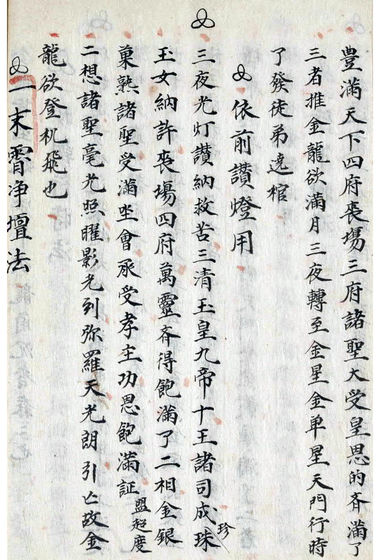 豊滿天下四府喪場三府諸聖大受皇恩的斉滿了
三者推金龍欲滿月三夜轉至金星金单星天門行時
了發徒弟遶棺
依前讃燈用
三夜光灯讃納救苦三清玉皇九帝十王諸司成珠珍
玉女納許喪場四府萬靈斉得飽滿了二相金銀
菓熟諸聖受滿坐會承受孝主功恩飽滿証盟超度
二想諸聖毫光照曜影光到弥羅天光朗引亡故金
龍欲登机飛也
一末霄净壇法